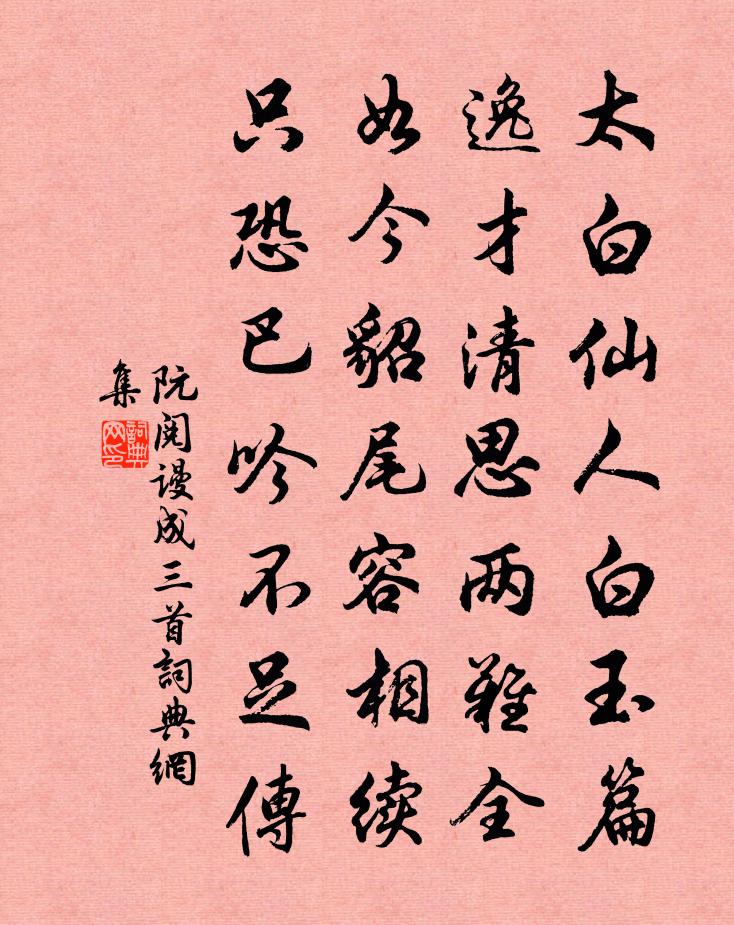 太白仙人白玉篇
逸才清思两難全
如今貂尾容相续
只恐巴吟不足傳
阮閱謾成三首詞典網
集
詞典網印